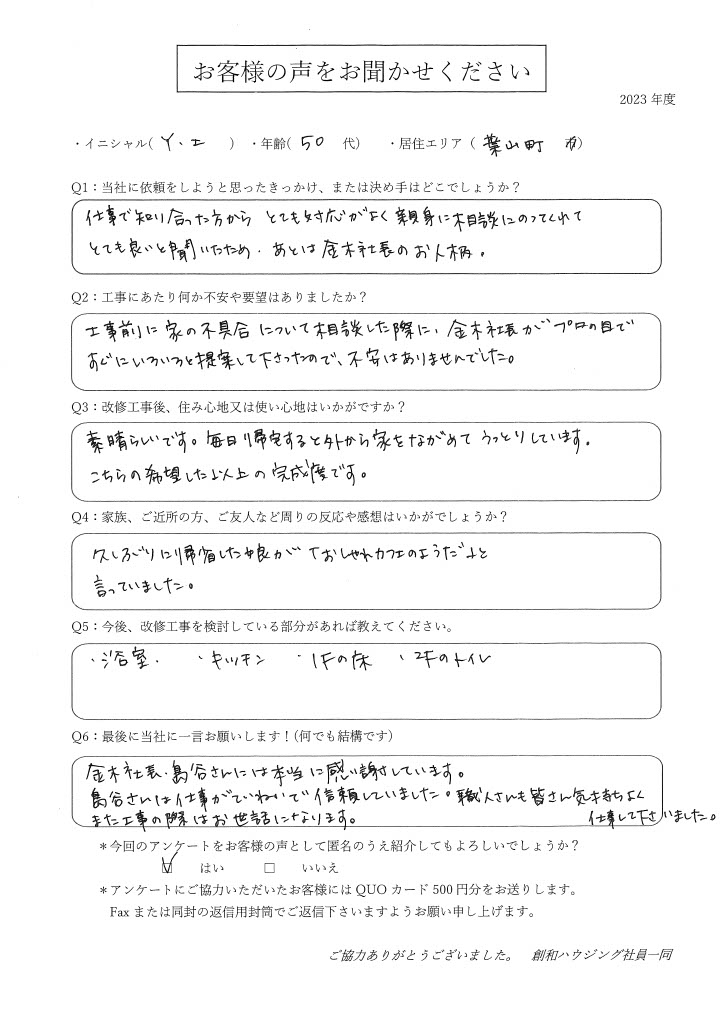 お客様の声をお聞かせください
2023 年度
・イニシャル( Y.I ) ・年齢( 50 代) ・居住エリア ( 葉山町 市)
Q1：当社に依頼をしようと思ったきっかけ、または決め手はどこでしょうか？
仕事で知り合った方から とても対応がよく親身に相談にのってくれて
とても良いと聞いたため. あとは金木社長のお人柄。
Q2：工事にあたり何か不安や要望はありましたか？
工事前に家の不具合について相談した際に、金木社長がプロの目で
すぐにいろいろと提案して下さったので、不安はありませんでした。
Q3：改修工事後、住み心地又は使い心地はいかがですか？
素晴らしいです。毎日帰宅すると外から家をながめてうっとりしています。
こちらの希望した以上の完成度です。
Q4：家族、ご近所の方、ご友人など周りの反応や感想はいかがでしょうか？
久しぶりに帰省した娘が「おしゃれカフェのようだ」と
言っていました。
Q5：今後、改修工事を検討している部分があれば教えてください。
・浴室. ・キッチン ・1Fの床 ・2Fのトイレ
Q6：最後に当社に一言お願いします！(何でも結構です)
金木社長・島谷さんには本当に感謝しています。
島谷さんは仕事がていねいで信頼していました。職人さんも皆さん気持ちよく
仕事して下さいました。
また工事の際はお世話になります。
＊今回のアンケートをお客様の声として匿名のうえ紹介してもよろしいでしょうか？
☑ はい □ いいえ
＊アンケートにご協力いただいたお客様には QUO カード 500 円分をお送りします。
Fax または同封の返信用封筒でご返信下さいますようお願い申し上げます。
ご協力ありがとうございました。 創和ハウジング社員一同